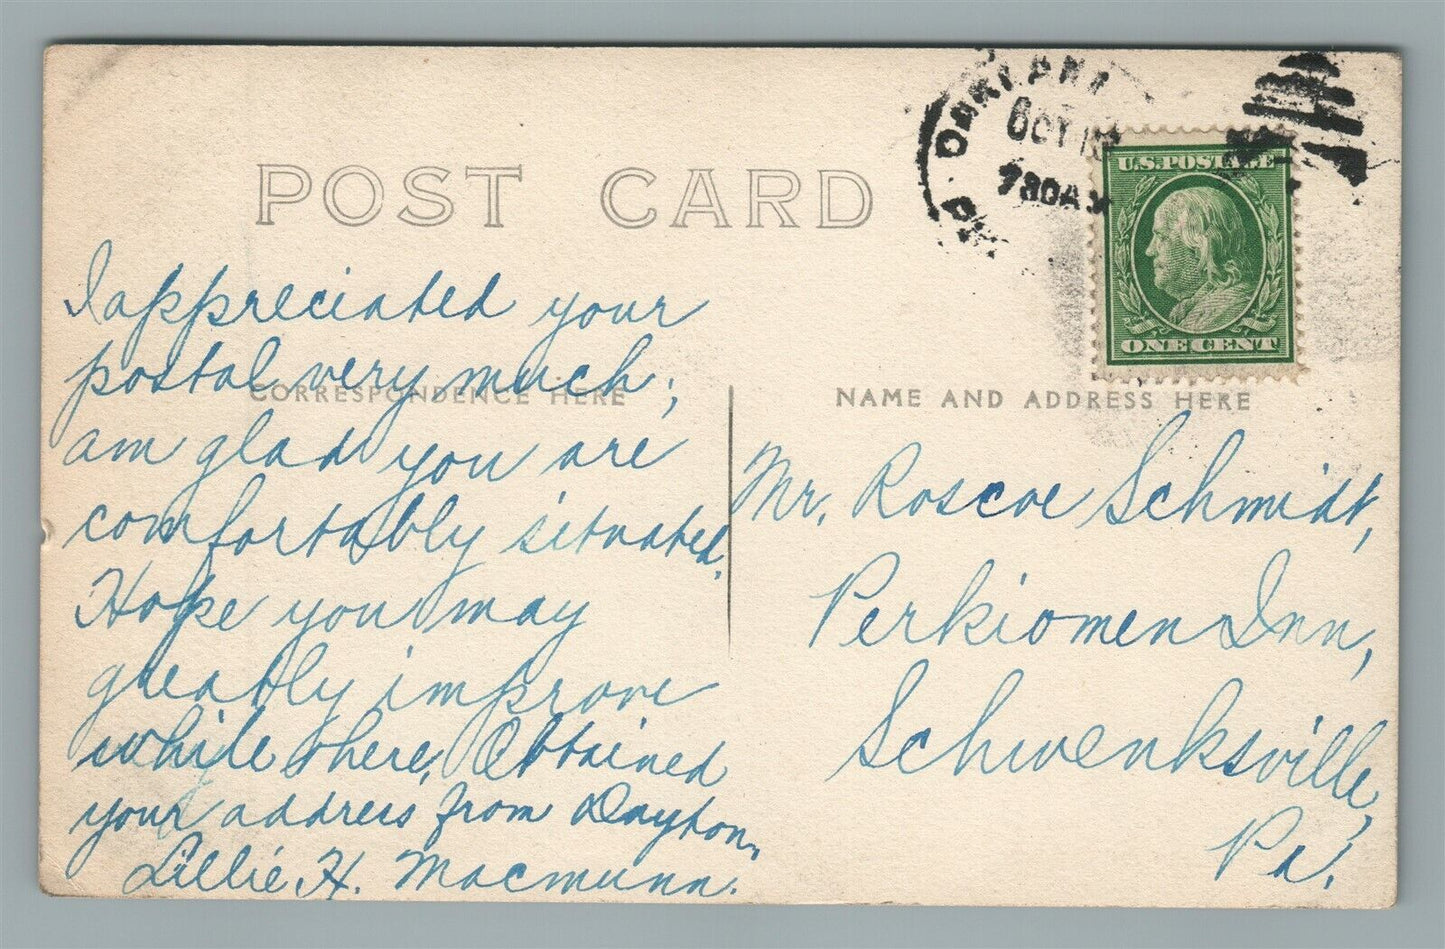 POST CARD
OAKLAND
OCT
730A
PA
U.S. POSTAGE
ONE CENT
CORRESPONDENCE HERE
I appreciated your
postal very much;
am glad you are
comfortably situated.
Hope you may
greatly improve
while there. Obtained
your address from Dayton.
Lillie H. Macmunn.
NAME AND ADDRESS HERE
Mr. Roscoe Schmidt,
Perkiomen Inn,
Schwenksville,
Pa.